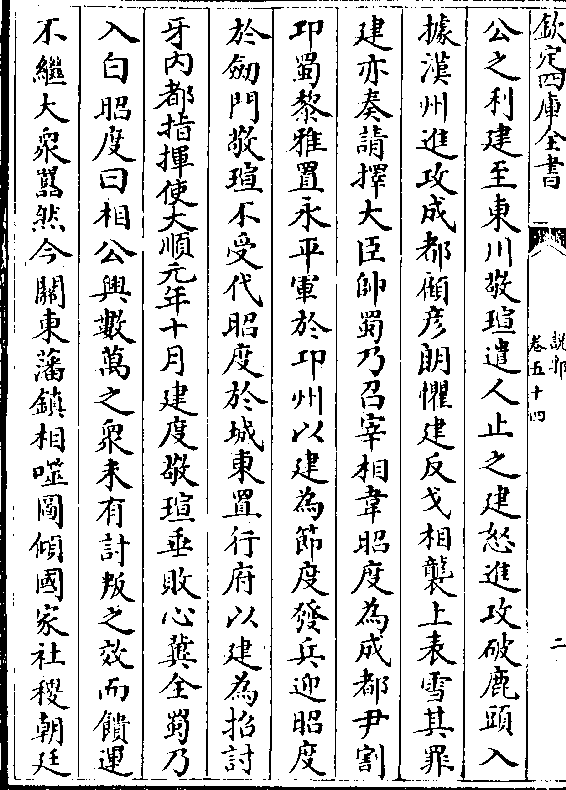 欽定四庫全書
說郛
卷五十四
二
公之利建至東川敬瑄遣人止之建怒進攻破鹿頭入
據漢州進攻成都顧彦朗懼建反戈相襲上表雪其罪
建亦奏請擇大臣帥蜀乃召宰相韋昭度為成都尹割
卭蜀黎雅置永平軍於卭州以建為節度發兵迎昭度
於劒門敬瑄不受代昭度於城東置行府以建為招討
牙内都指揮使大順元年十月建度敬瑄垂敗心冀全蜀乃
入白昭度曰相公興數萬之衆未有討叛之效而饋運
不繼大衆囂然今關東藩鎮相噬圖傾國家社稷朝廷